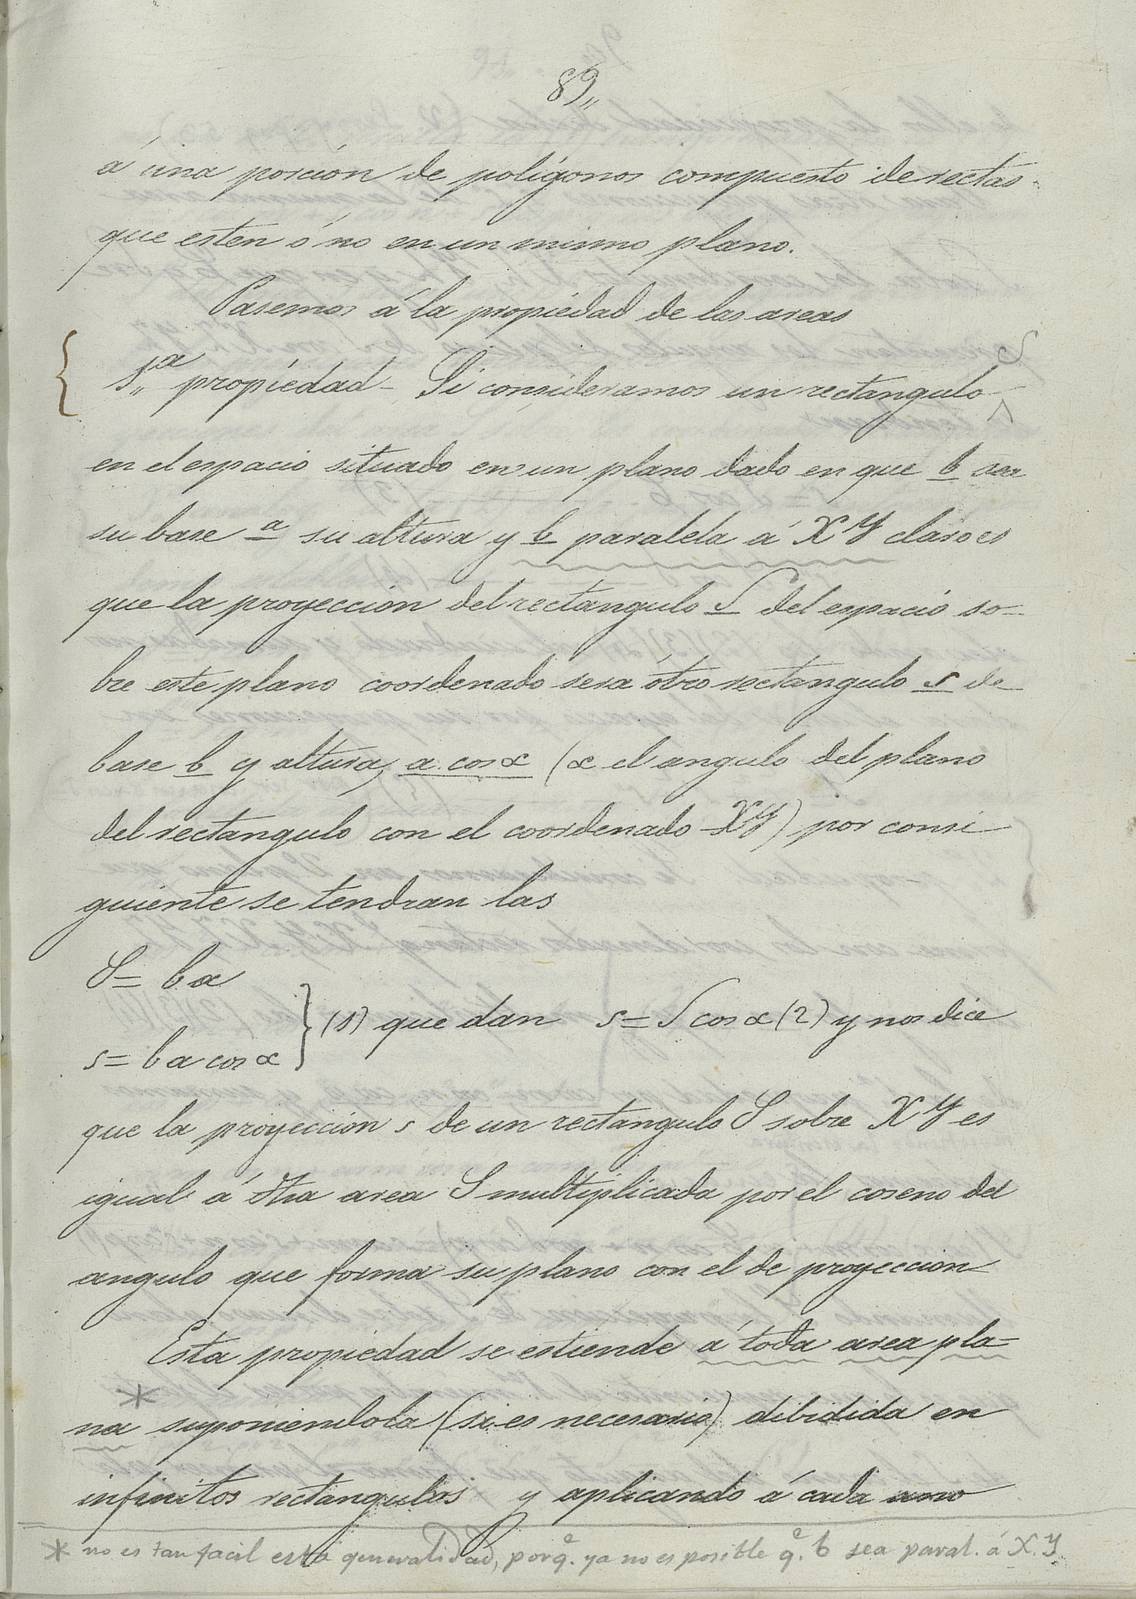 89,,
á una porción de polígonos compuesto de rectas
que esten ó no en un mismo plano.
Pasemos á la propiedad de las areas
1,,ª propiedad - Si consideramos un rectangulo S
en el espacio situado en un plano dado en que b sea
su base a su altura y b paralela á XY claro es
que la proyección del rectangulo S del espacio so-
bre este plano coordenado será otro rectangulo s de
base b y altura, a cos α (α el angulo del plano
del rectangulo con el coordenado XY) por consi
guiente se tendran las
S = b a
s = b a cos α } (1) que dan s = S cos α (2) y nos dice
que la proyección s de un rectangulo S sobre XY es
igual á otra area S multiplicada por el coseno del
angulo que forma su plano con el de proyeccion
Esta propiedad se estiende á toda area pla-
na * suponiendola (si es necesario) dibidida en
infinitos rectangulos y aplicando á cada uno
* no es tan facil esta generalidad, porq.e ya no es posible q.e b sea paral. á X Y